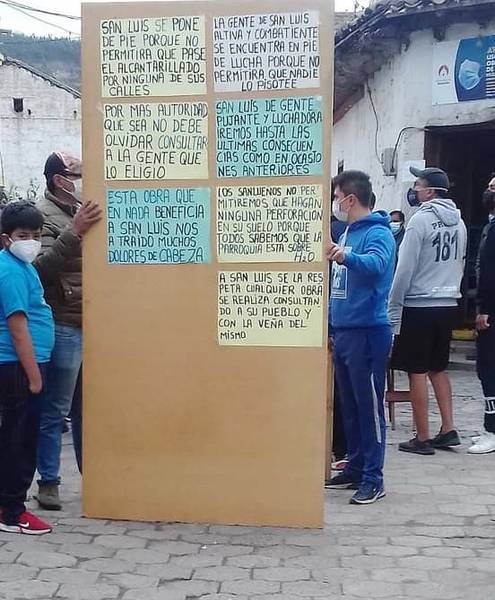 SAN LUIS SE PONE
DE PIE PORQUE NO
PERMITIRA QUE PASE
EL ALCANTARILLADO
POR NINGUNA DE SUS
CALLES
LA GENTE DE SAN LUIS
ALTIVA Y COMBATIENTE
SE ENCUENTRA EN PIE
DE LUCHA PORQUE NO
PERMITIRA QUE NADIE
LO PISOTEE
POR MAS AUTORIDAD
QUE SEA NO DEBE
OLVIDAR CONSULTAR
A LA GENTE QUE
LO ELIGIO
SAN LUIS DE GENTE
PUJANTE Y LUCHADORA
IREMOS HASTA LAS
ULTIMAS CONSECUEN
CIAS COMO EN OCASIO
NES ANTERIORES
ESTA OBRA QUE
EN NADA BENEFICIA
A SAN LUIS NOS
A TRAIDO MUCHOS
DOLORES DE CABEZA
LOS SANLUEÑOS NO PER
MITIREMOS QUE HAGAN
NINGUNA PERFORACION
EN SU SUELO PORQUE
TODOS SABEMOS QUE LA
PARROQUIA ESTA SOBRE
H2O
A SAN LUIS SE LA RES
PETA CUALQUIER OBRA
SE REALIZA CONSULTAN
DO A SU PUEBLO Y
CON LA VEÑA DEL
MISMO
181